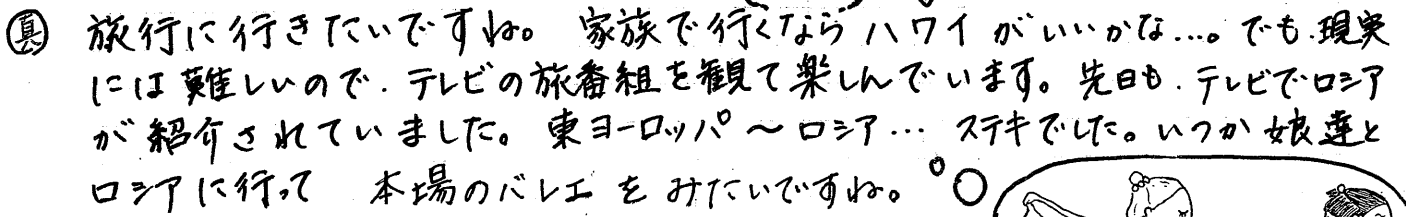 真 旅行に行きたいですね。 家族で行くならハワイがいいかな…。でも、現実
には難しいので、テレビの旅番組を観て楽しんでいます。先日も、テレビでロシア
が紹介されていました。東ヨーロッパ〜ロシア… ステキでした。いつか娘達と
ロシアに行って 本場のバレエをみたいですね。